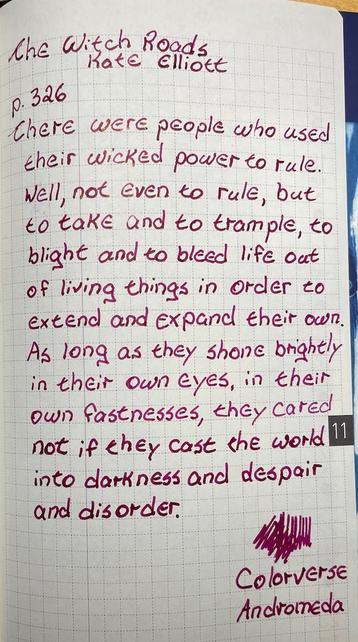 The Witch Roads
Kate Elliott
p. 326
There were people who used
their wicked power to rule.
Well, not even to rule, but
to take and to trample, to
blight and to bleed life out
of living things in order to
extend and expand their own.
As long as they shone brightly
in their own eyes, in their
own fastnesses, they cared
not if they cast the world
into darkness and despair
and disorder.
11
Colorverse
Andromeda